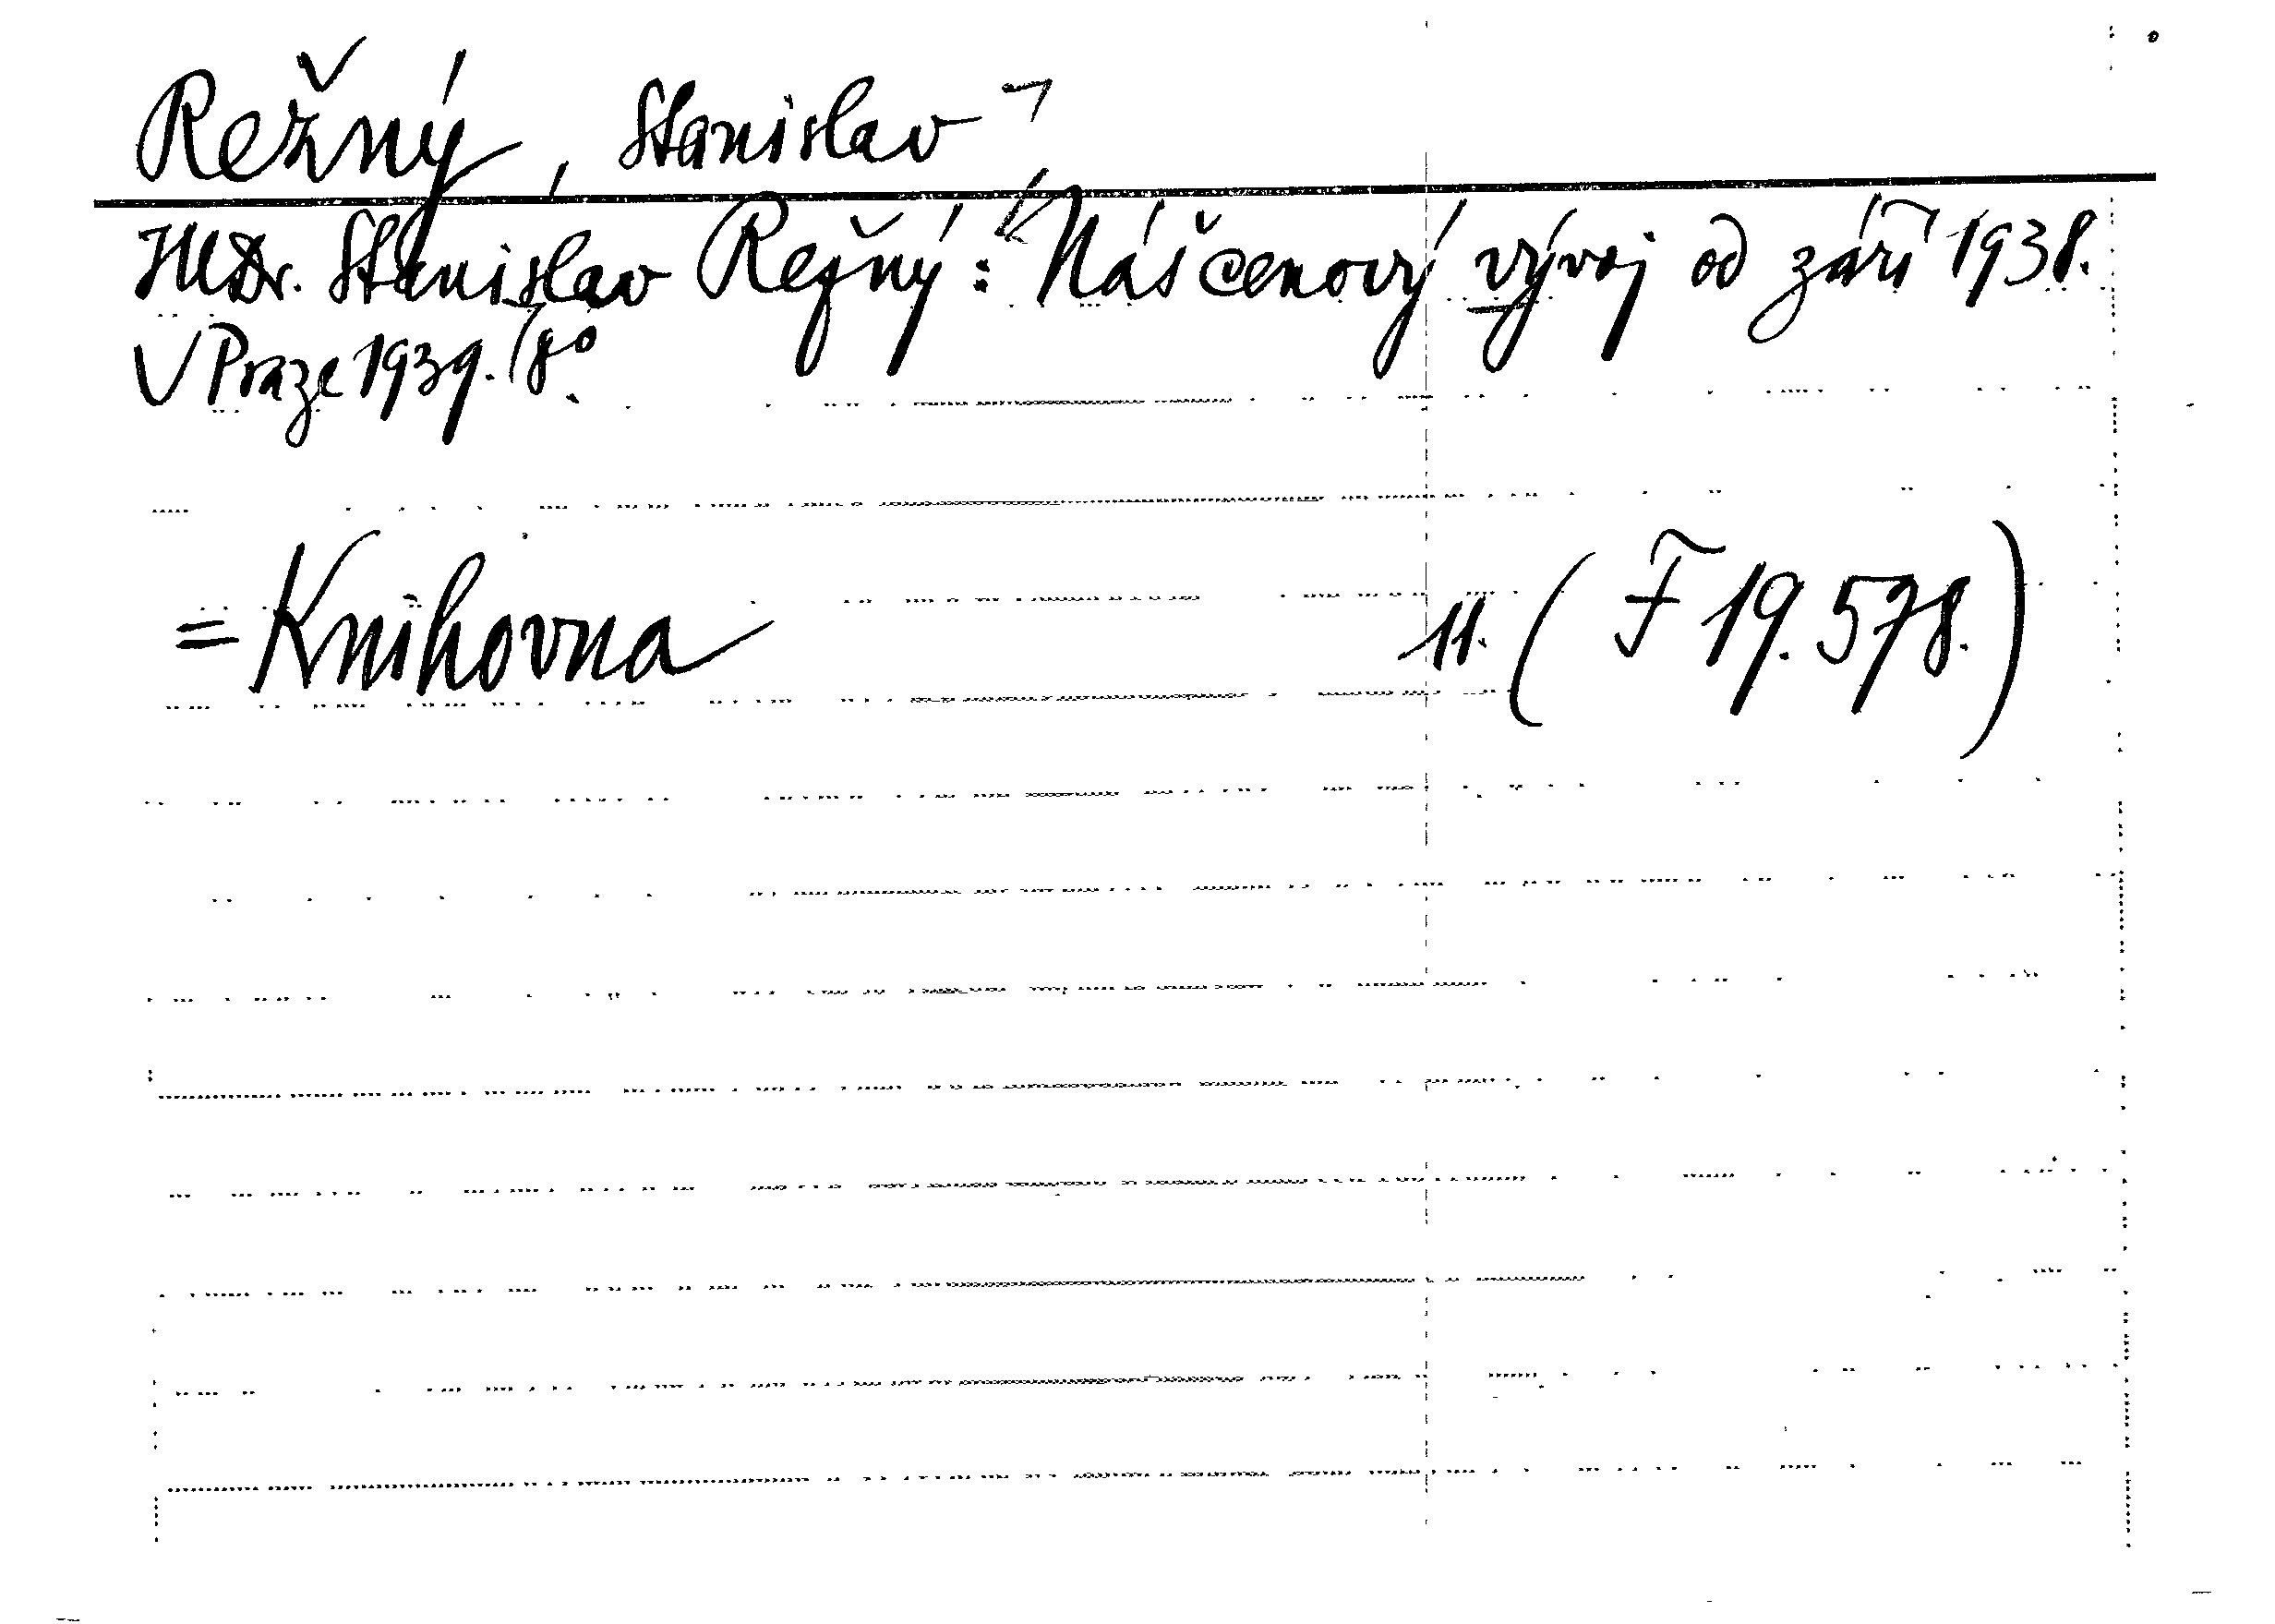 Režný, Stanislav
JUDr. Stanislav Režný: Náš cenový vývoj od září 1938.
V Praze 1939. 8°.
= Knihovna 11. (F 19.578.)